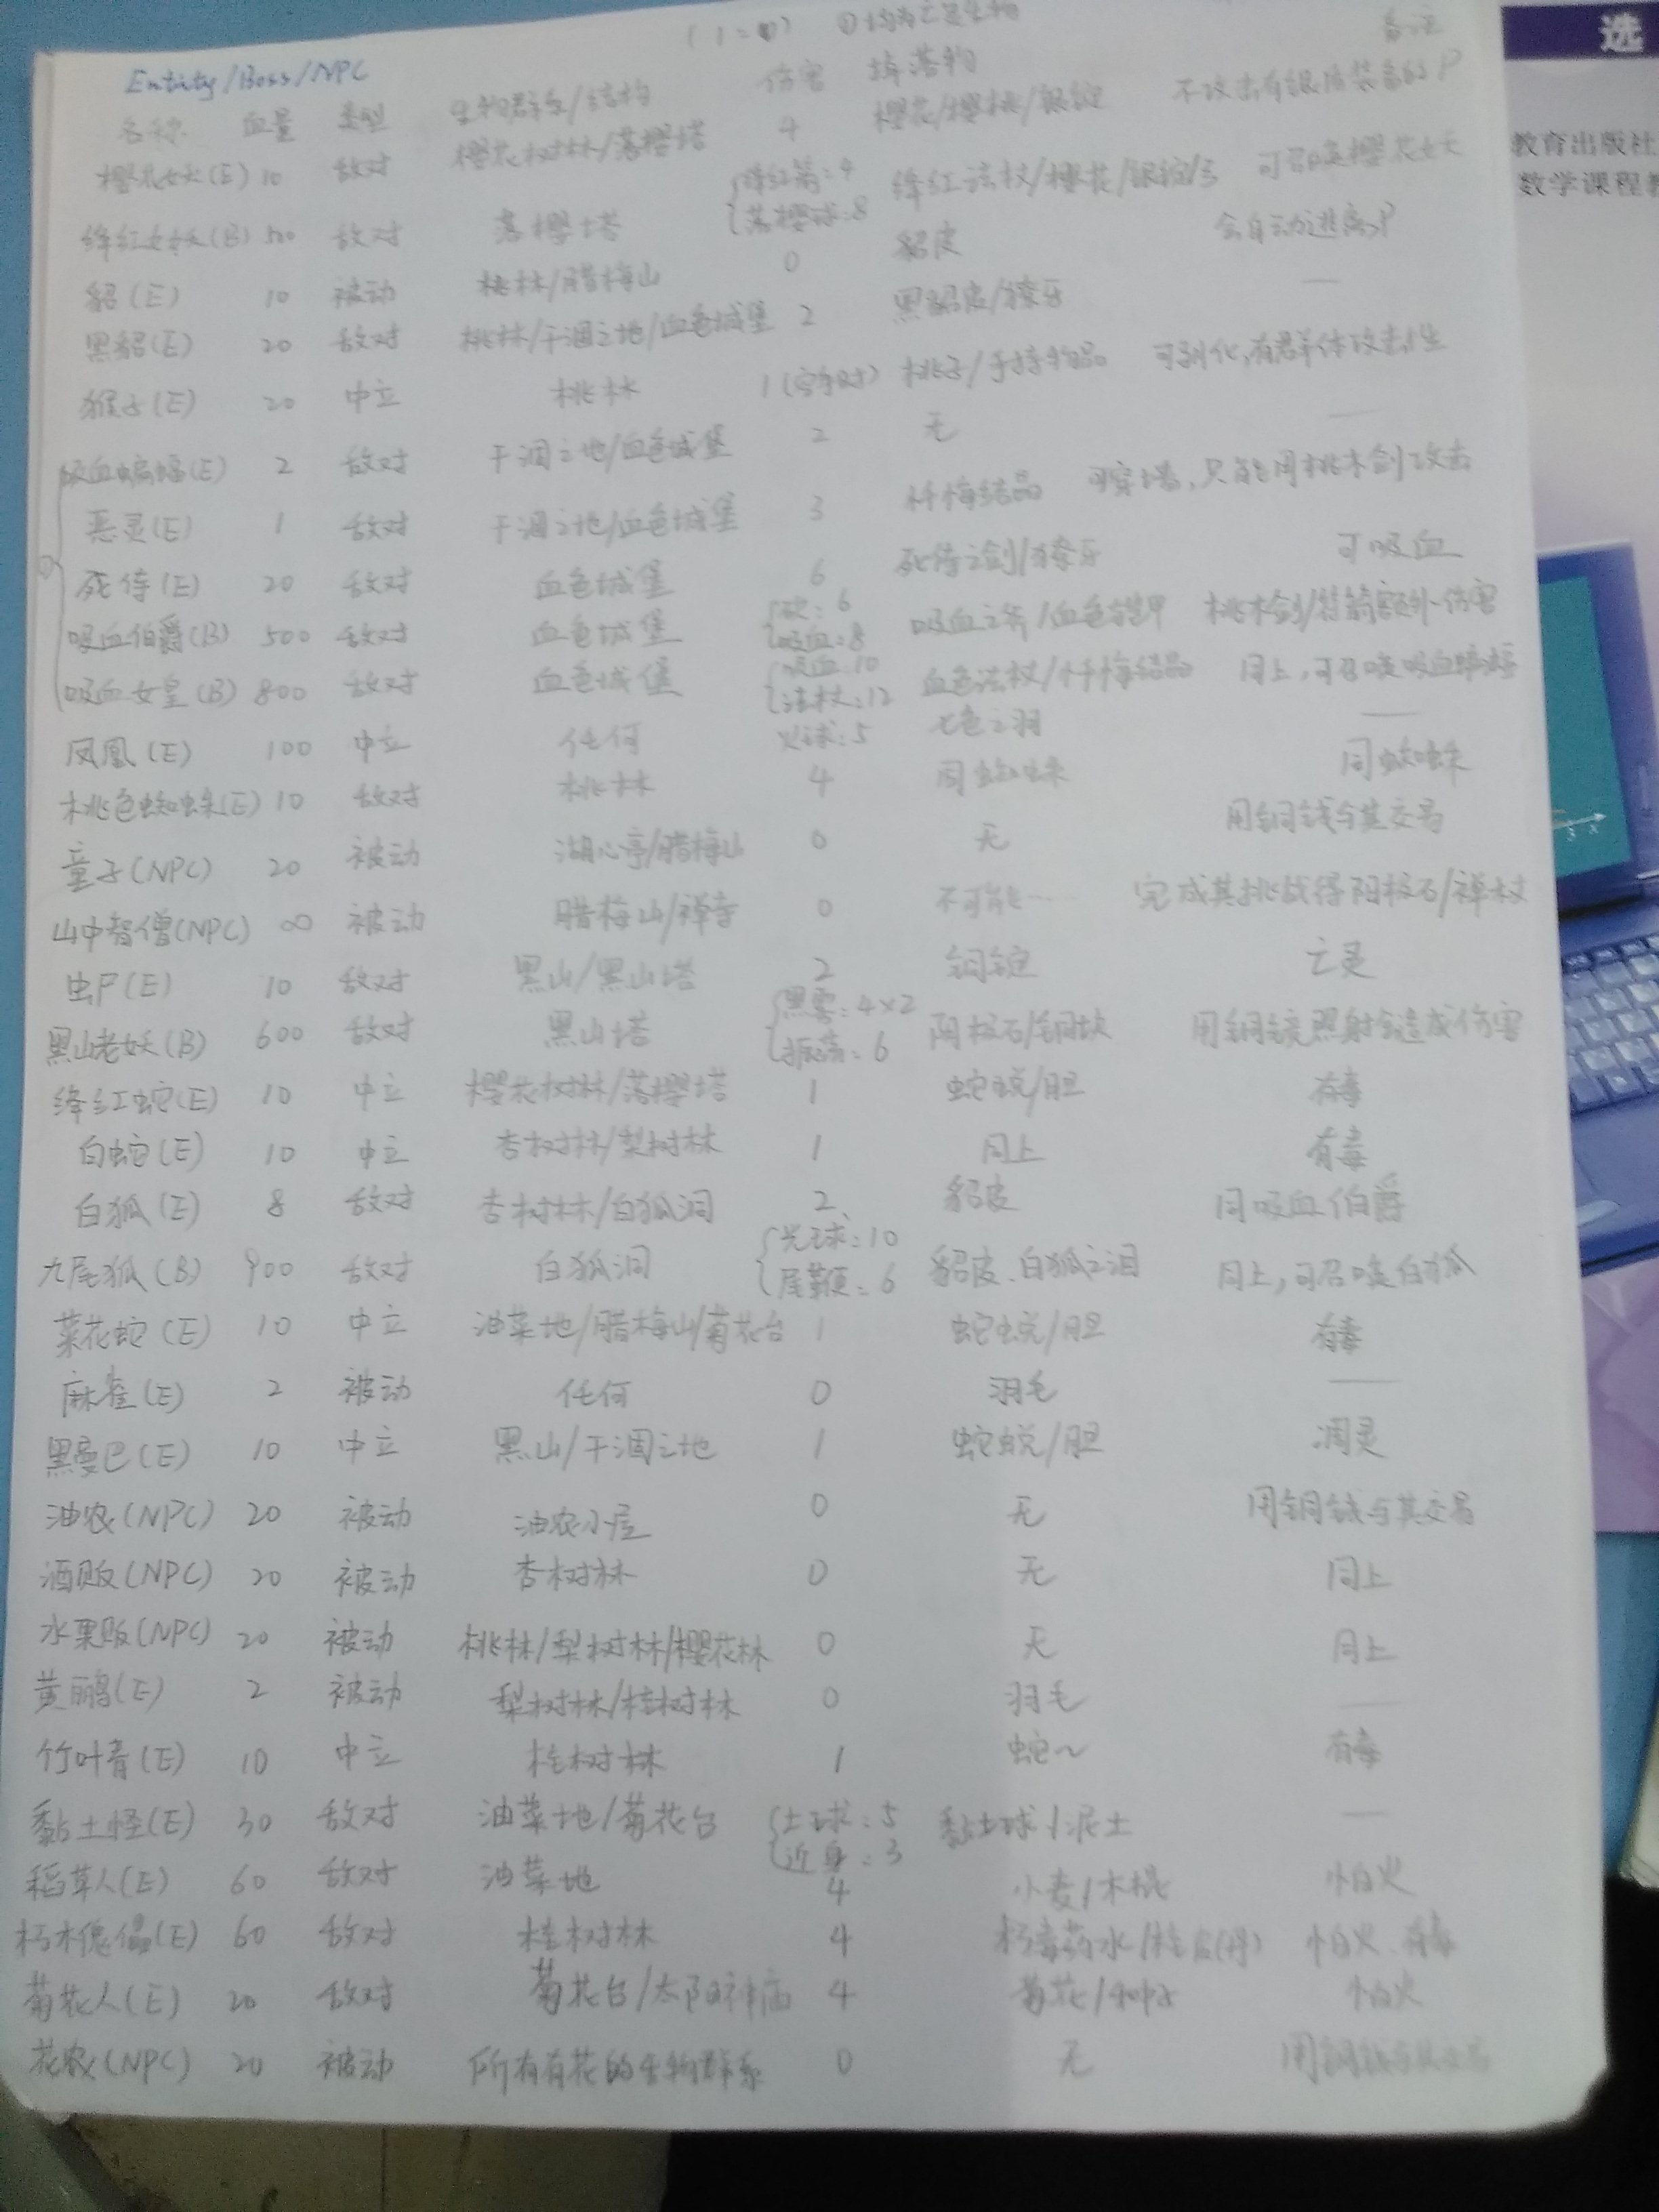 (1=0) ①均为亡灵生物
Entity/Boss/NPC
名称 血量 类型 生物群系/结构 伤害 掉落物 备注
樱花女妖(E) 10 敌对 樱花树林/落樱塔 4 樱花/樱桃/银锭 不攻击有银质装备的P
绛红女妖(B) 500 敌对 落樱塔 {绛红箭:4 落樱球:8 绛红法杖/樱花/银锭/ 可召唤樱花女妖
貂(E) 10 被动 桃林/腊梅山 0 貂皮 会自动逃离P
黑貂(E) 20 敌对 桃林/干涸之地/血色城堡 2 黑貂皮/獠牙 —
猴子(E) 20 中立 桃林 1(空手时) 桃子/手持物品 可驯化,有群体攻击性
吸血蝙蝠(E) 2 敌对 干涸之地/血色城堡 2 无 —
① 恶灵(E) 1 敌对 干涸之地/血色城堡 3 忏悔结晶 可穿墙,只能用桃木剑攻击
死侍(E) 20 敌对 血色城堡 6 死侍之剑/獠牙 可吸血
吸血伯爵(B) 500 敌对 血色城堡 {砍:6 吸血:8 吸血之斧/血色铠甲 桃木剑/符箭额外伤害
吸血女皇(B) 800 敌对 血色城堡 {吸血:10 法杖:12 血色法杖/忏悔结晶 同上,可召唤吸血蝙蝠
凤凰(E) 100 中立 任何 火球:5 七色之羽 —
桃色蜘蛛(E) 10 敌对 桃林 4 同蜘蛛 同蜘蛛
童子(NPC) 20 被动 湖心亭/腊梅山 0 无 用铜钱与其交易
山中智僧(NPC) ∞ 被动 腊梅山/禅寺 0 不可能… 完成其挑战得阳极石/禅杖
虫尸(E) 10 敌对 黑山/黑山塔 2 铜锭 亡灵
黑山老妖(B) 600 敌对 黑山塔 {黑雾:4×2 振荡:6 阴极石/铜块 用铜镜照射会造成伤害
绛红蛇(E) 10 中立 樱花树林/落樱塔 1 蛇蜕/胆 有毒
白蛇(E) 10 中立 杏树林/梨树林 1 同上 有毒
白狐(E) 8 敌对 杏树林/白狐洞 2 貂皮 同吸血伯爵
九尾狐(B) 900 敌对 白狐洞 {光球:10 尾鞭:6 貂皮、白狐之泪 同上,可召唤白狐
菜花蛇(E) 10 中立 油菜地/腊梅山/菊花台 1 蛇蜕/胆 有毒
麻雀(E) 2 被动 任何 0 羽毛 —
黑曼巴(E) 10 中立 黑山/干涸之地 1 蛇蜕/胆 凋灵
油农(NPC) 20 被动 油农小屋 0 无 用铜钱与其交易
酒贩(NPC) 20 被动 杏树林 0 无 同上
水果贩(NPC) 20 被动 桃林/梨树林/樱花林 0 无 同上
黄鹂(E) 2 被动 梨树林/桂树林 0 羽毛 —
竹叶青(E) 10 中立 桂树林 1 蛇~ 有毒
黏土怪(E) 30 敌对 油菜地/菊花台 {土球:5 近身:3 黏土球/泥土 —
稻草人(E) 60 敌对 油菜地 4 小麦/木棍 怕火
朽木傀儡(E) 60 敌对 桂树林 4 朽毒药水/ 怕火、有毒
菊花人(E) 20 敌对 菊花台/太阳神庙 4 菊花/ 怕火
花农(NPC) 20 被动 所有有花的生物群系 0 无 用铜钱与其交易
选
教育出版社
数学课程教